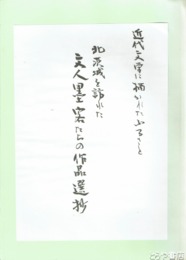 近代文学に描かれたふるさと
北茨城を訪れた
文人墨客たちの作品選抄